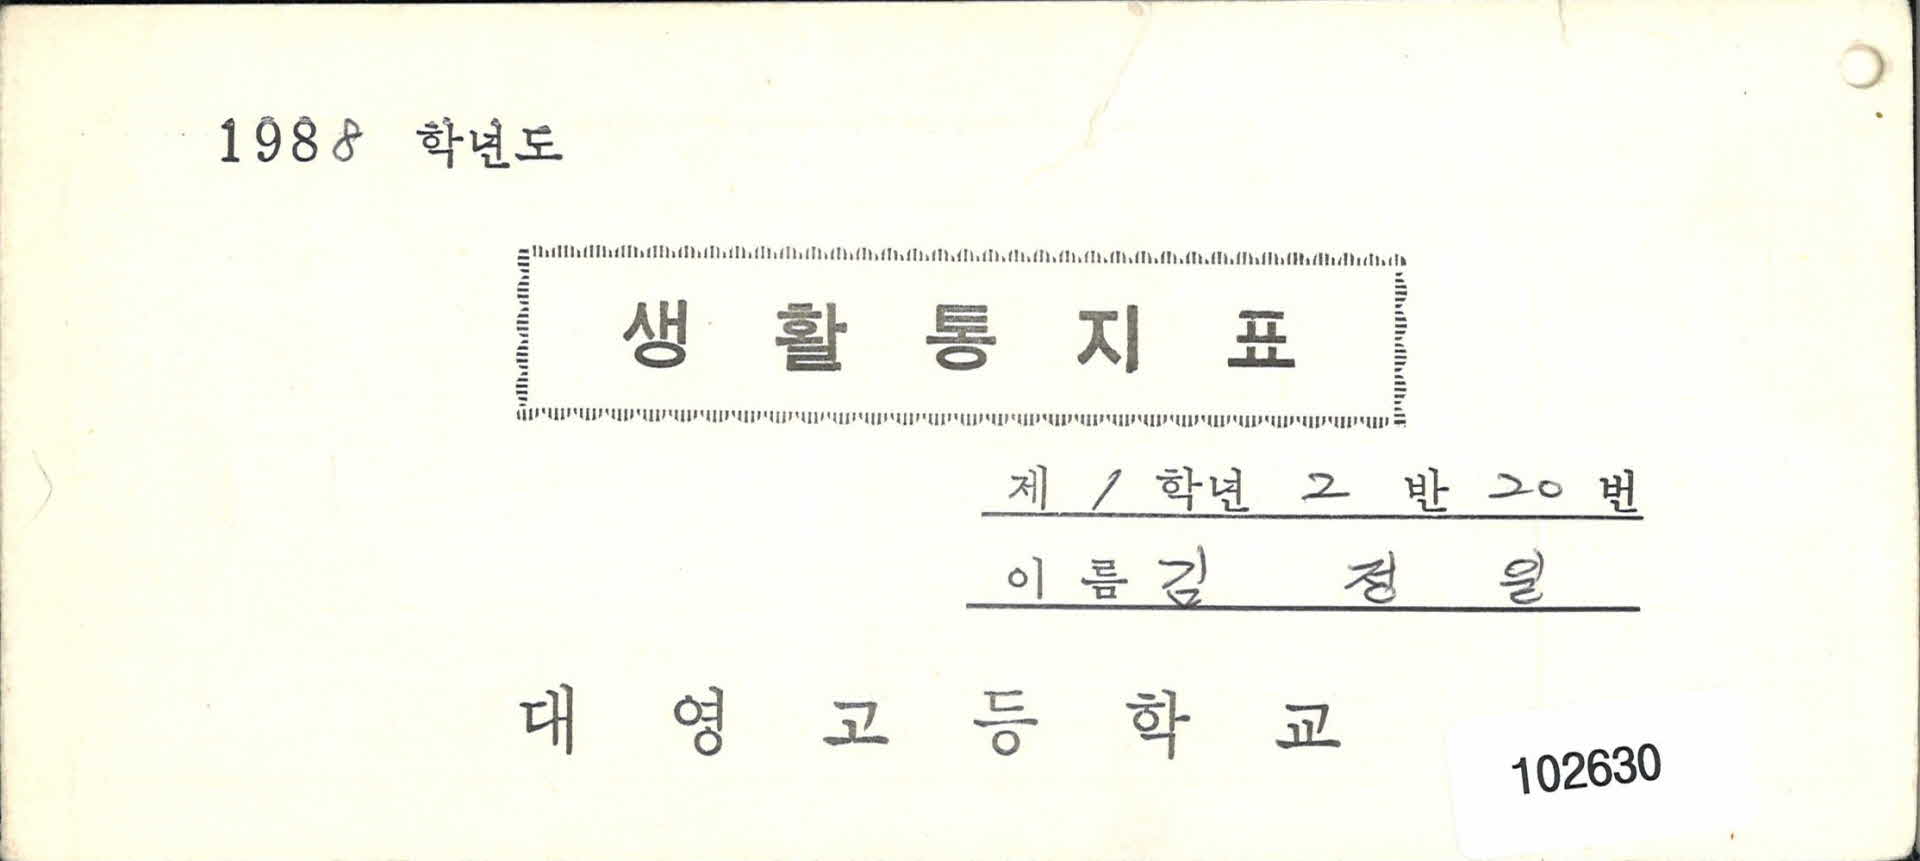 1988 학년도
생활통지표
제 1 학년 2 반 20 번
이름 김 정 일
대영고등학교
102630